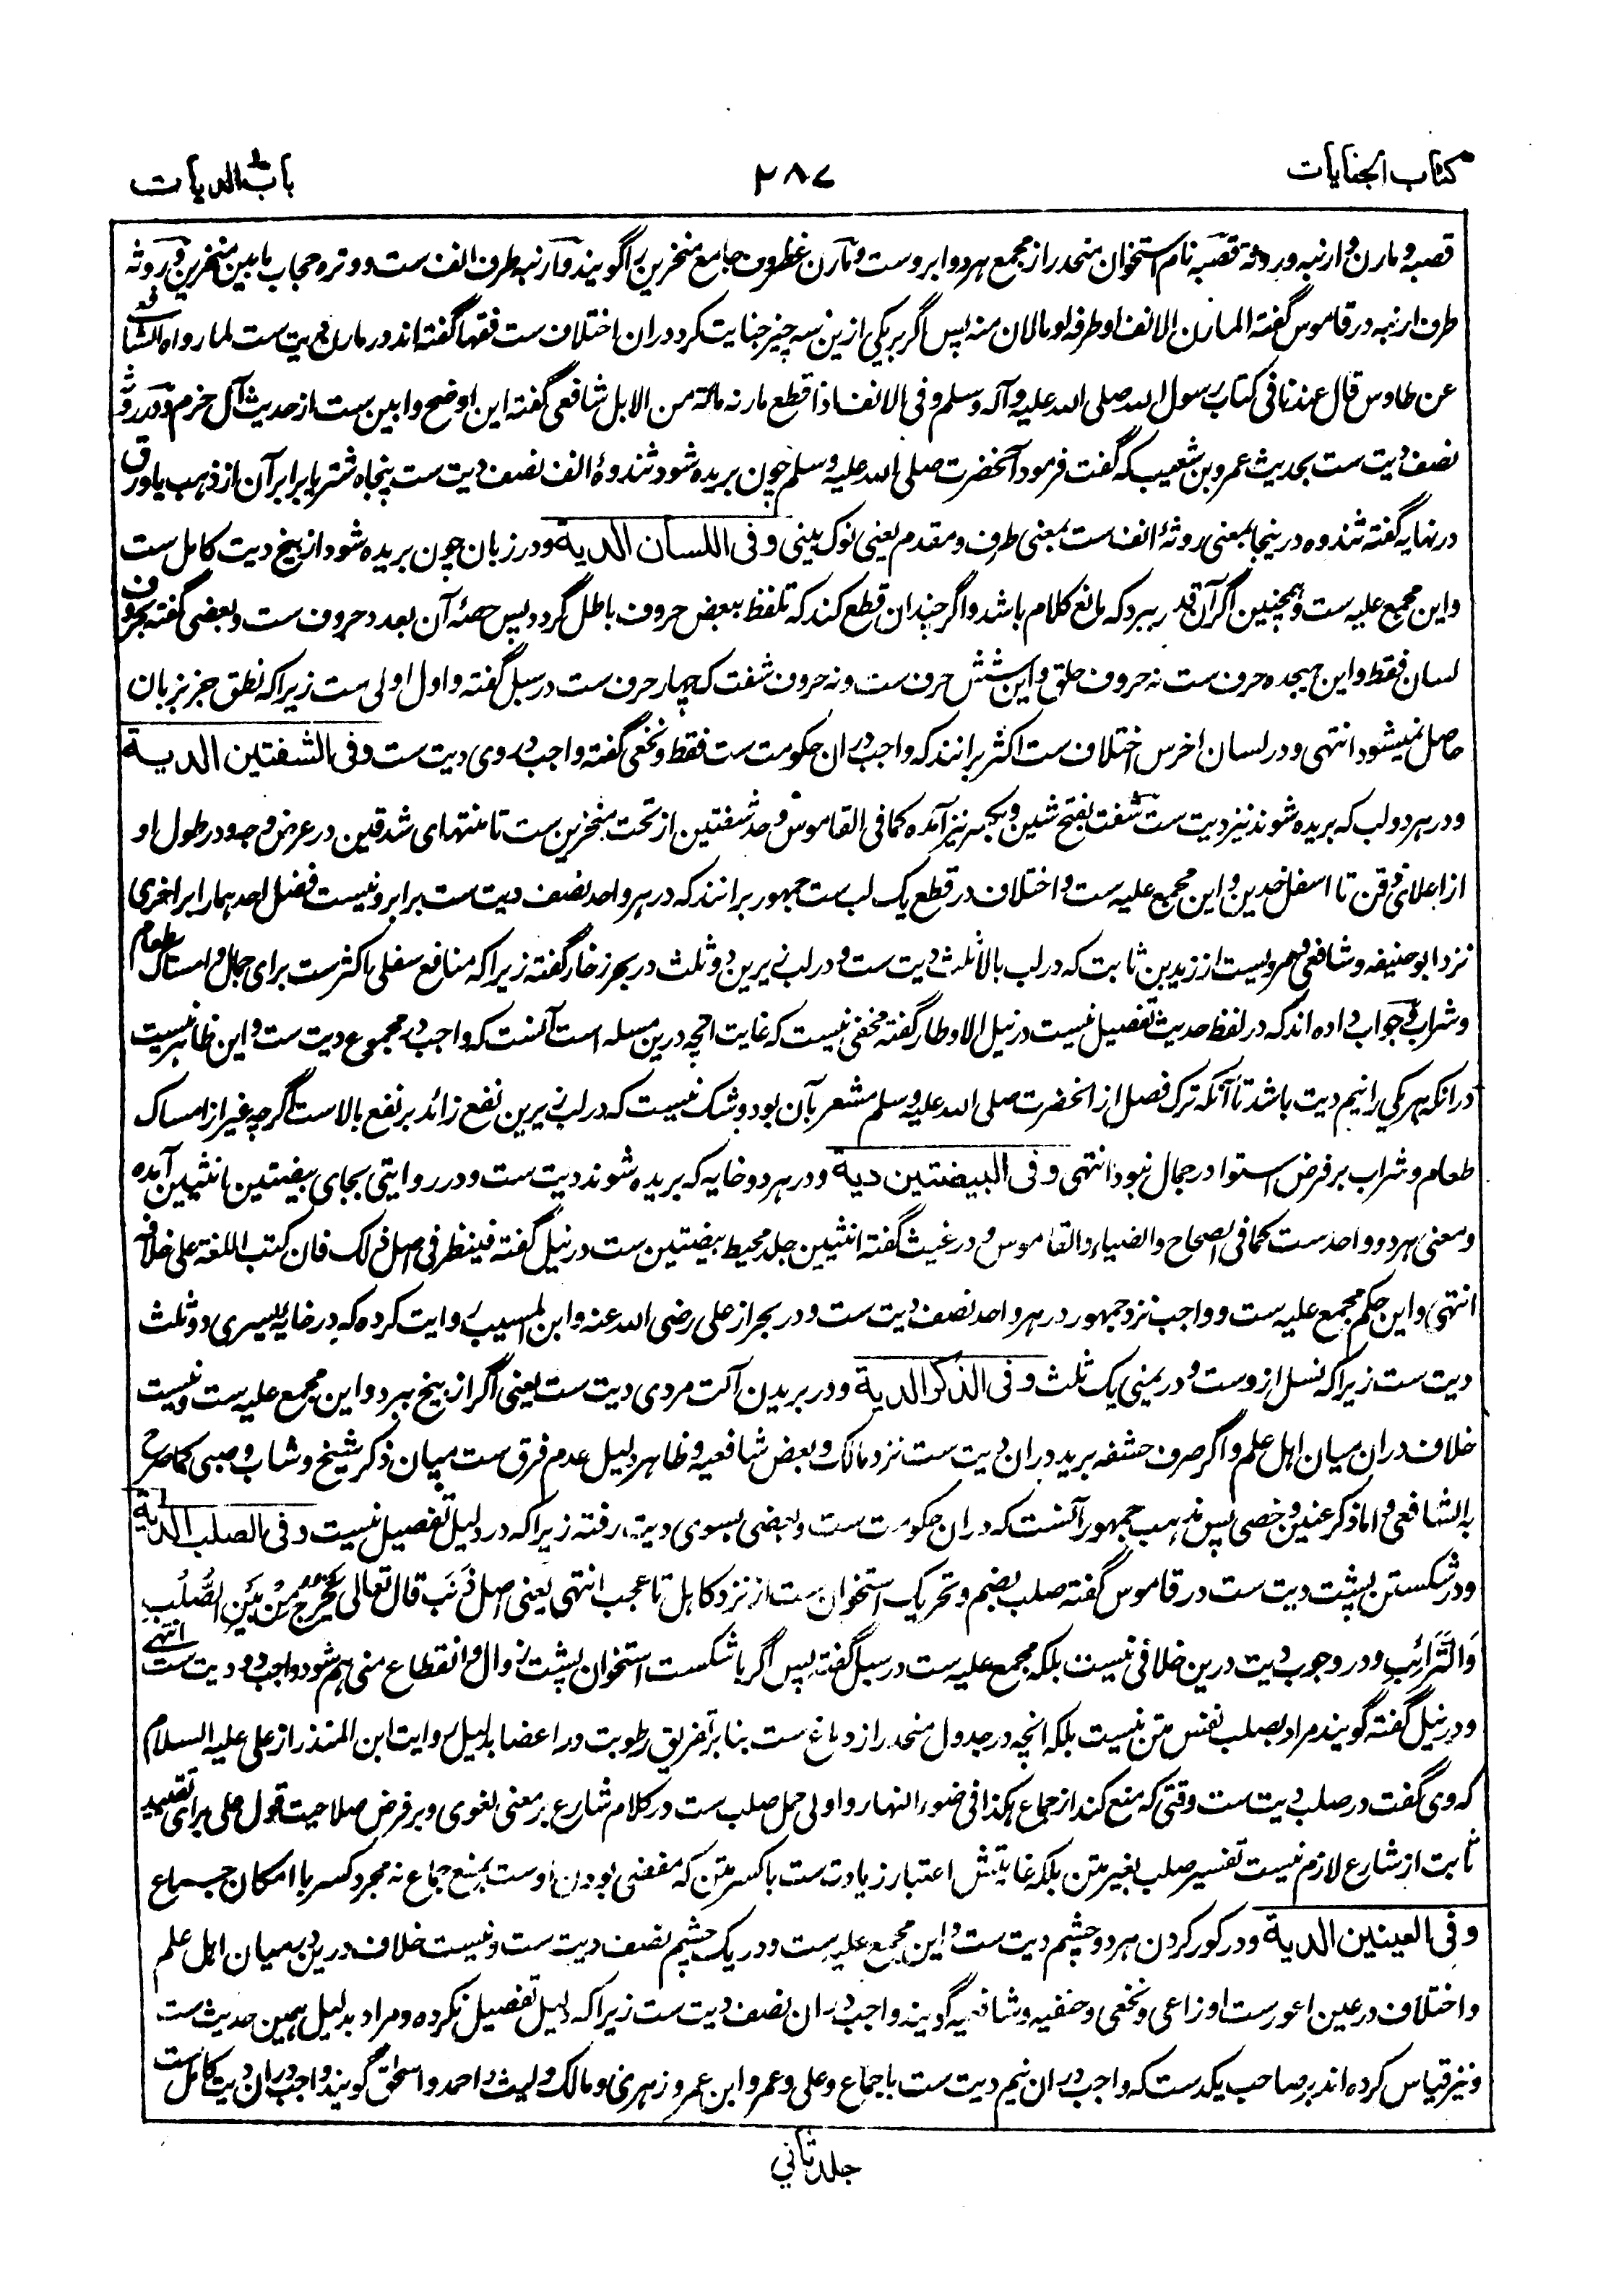 کتاب الجنایات
۲۸۷
باب الدیات
قصبه و مارن و ارنبه و روثه قصبه نام استخوان منحدر از مجمع هر دو ابروست و مارن غطروف جامع منخرین را گویند و ارنبه طرف انف ست و وتره حجاب ما بین منخرین و روثه
طرف ارنبه در قاموس گفته المارن الانف او طرفه او ما لان منه پس اگر بر یکی ازین سه چیز جنایت کرد دران اختلاف ست فقها گفته اند در مارن دیت ست لما رواه الشافعی
عن طاوس قال عندنا فی کتاب رسول الله صلی الله علیه و آله وسلم و فی الانف اذا قطع مارنه مائة من الابل شافعی گفته این اوضح و ابین ست از حدیث آل حزم و در روثه
نصف دیت ست بحدیث عمرو بن شعیب که گفت فرمود آنحضرت صلی الله علیه وسلم چون بریده شود ثندوهٔ انف نصف دیت ست پنجاه شتر یا برابر آن از ذهب یا ورق
در نهایه گفته ثندوه درینجا بمعنی روثهٔ انف ست بمعنی طرف و مقدم یعنی نوک بینی و فی اللسان الدیة و در زبان چون بریده شود از بیخ دیت کامل ست
و این مجمع علیه ست و همچنین اگر آن قدر ببرد که مانع کلام باشد و اگر چندان قطع کند که تلفظ ببعض حروف باطل گردد پس حصهٔ آن بعدد حروف ست و بعضی گفته بحروف
لسان فقط و این هیجده حرف ست نه حروف حلق و این شش حرف ست و نه حروف شفت که چهار حرف ست در سبل گفته و اول اولی ست زیرا که نطق جز بزبان
حاصل نمیشود انتهی و در لسان اخرس اختلاف ست اکثر برانند که واجب دران حکومت ست فقط و نخعی گفته واجب در وی دیت ست و فی الشفتین الدیة
و در هر دو لب که بریده شوند نیز دیت ست شفت بفتح شین و بکسر نیز آمده کما فی القاموس و حد شفتین از تحت منخرین ست تا منتهای شدقین در عرض وجه و در طول او
از اعلای ذقن تا اسفل خدین و این مجمع علیه ست و اختلاف در قطع یک لب ست جمهور برانند که در هر واحد نصف دیت ست برابر و نیست فضل احدهما را بر اخری
نزد ابو حنیفه و شافعی و مرویست از زید بن ثابت که در لب بالا ثلث دیت ست و در لب زیرین دو ثلث در بحر زخار گفته زیرا که منافع سفلی اکثرست برای جمال و امساک طعام
و شراب و جواب داده اند که در لفظ حدیث تفصیل نیست در نیل الاوطار گفته مخفی نیست که غایت انچه درین مسئله است آنست که واجب در مجموع دیت ست و این ظاهر نیست
درانکه هر یکی را نیم دیت باشد تا آنکه ترک فصل از آنحضرت صلی الله علیه وسلم مشعر بآن بود و شک نیست که در لب زیرین نفع زائد بر نفع بالاست اگرچه غیر از امساک
طعام و شراب بر فرض استوا در جمال نبود انتهی و فی البیضتین دیة و در هر دو خایه که بریده شوند دیت ست و در روایتی بجای بیضتین انثیین آمده
و معنی هر دو واحد ست کما فی الصحاح والضیاء والقاموس و در غیث گفته انثیین جلد محیط بیضتین ست در نیل گفته فینظر فی اصل ذلک فان کتب اللغة علی خلافه
انتهی و این حکم مجمع علیه ست و واجب نزد جمهور در هر واحد نصف دیت ست و در بحر از علی رضی الله عنه و ابن المسیب روایت کرده که در خایهٔ یسری دو ثلث
دیت ست زیرا که نسل ازوست و در یمنی یک ثلث و فی الذکر الدیة و در بریدن آلت مردی دیت ست یعنی اگر از بیخ ببرد و این مجمع علیه ست و نیست
خلاف دران میان اهل علم و اگر صرف حشفه برید دران دیت ست نزد مالک و بعض شافعیه و ظاهر دلیل عدم فرق ست میان ذکر شیخ و شاب و صبی کما صرح
به الشافعی و اما ذکر عنین و خصی پس مذهب جمهور آنست که دران حکومت ست و بعضی بسوی دیت رفته زیرا که در دلیل تفصیل نیست و فی الصلب الدیة
و در شکستن پشت دیت ست در قاموس گفته صلب بضم و تحریک استخوان ست از نزد کاهل تا عجب انتهی یعنی اصل ذَنَب قال تعالی یَخْرُجُ مِنْ بَیْنِ الصُّلْبِ
وَالتَّرَائِبِ و در وجوب دیت درین خلافی نیست بلکه مجمع علیه ست در سبل گفته پس اگر با شکست استخوان پشت زوال و انقطاع منی هم شود واجب دو دیت ست انتهی
و در نیل گفته گویند مراد بصلب نفس متن نیست بلکه انچه در جدول منحدر از دماغ ست بنا بر تفریق رطوبت در اعضا بدلیل روایت ابن المنذر از علی علیه السلام
که وی گفت در صلب دیت ست وقتی که منع کند از جماع هکذا فی ضوء النهار و اولی حمل صلب ست در کلام شارع بر معنی لغوی و بر فرض صلاحیت قول علی برای تقیید
ثابت از شارع لازم نیست تفسیر صلب بغیر متن بلکه غایتش اعتبار زیادت ست با کسر متن که مفضی بودن اوست بمنع جماع نه مجرد کسر با امکان جماع
و فی العینین الدیة و در کور کردن هر دو چشم دیت ست و این مجمع علیه ست و در یک چشم نصف دیت ست و نیست خلاف درین میان اهل علم
و اختلاف در عین اعورست اوزاعی و نخعی و حنفیه و شافعیه گویند واجب دران نصف دیت ست زیرا که دلیل تفصیل نکرده و مراد بدلیل همین حدیث ست
و نیز قیاس کرده اند بر صاحب یکدست که واجب دران نیم دیت ست باجماع و علی و عمر و ابن عمر و زهری و مالک و لیث و احمد و اسحق گویند واجب دران دیت کامل ست
جلد ثانی